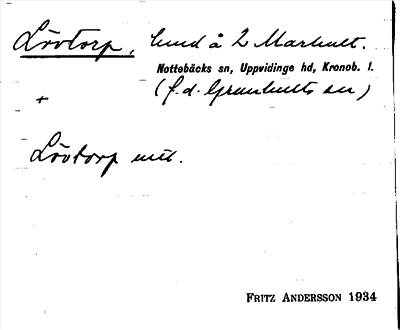 Lövtorp, lund å 2 Marhult.
Nottebäcks sn, Uppvidinge hd, Kronob. l.
(f.d. Granhults sn)
+
Lövtorp
FRITZ ANDERSSON 1934